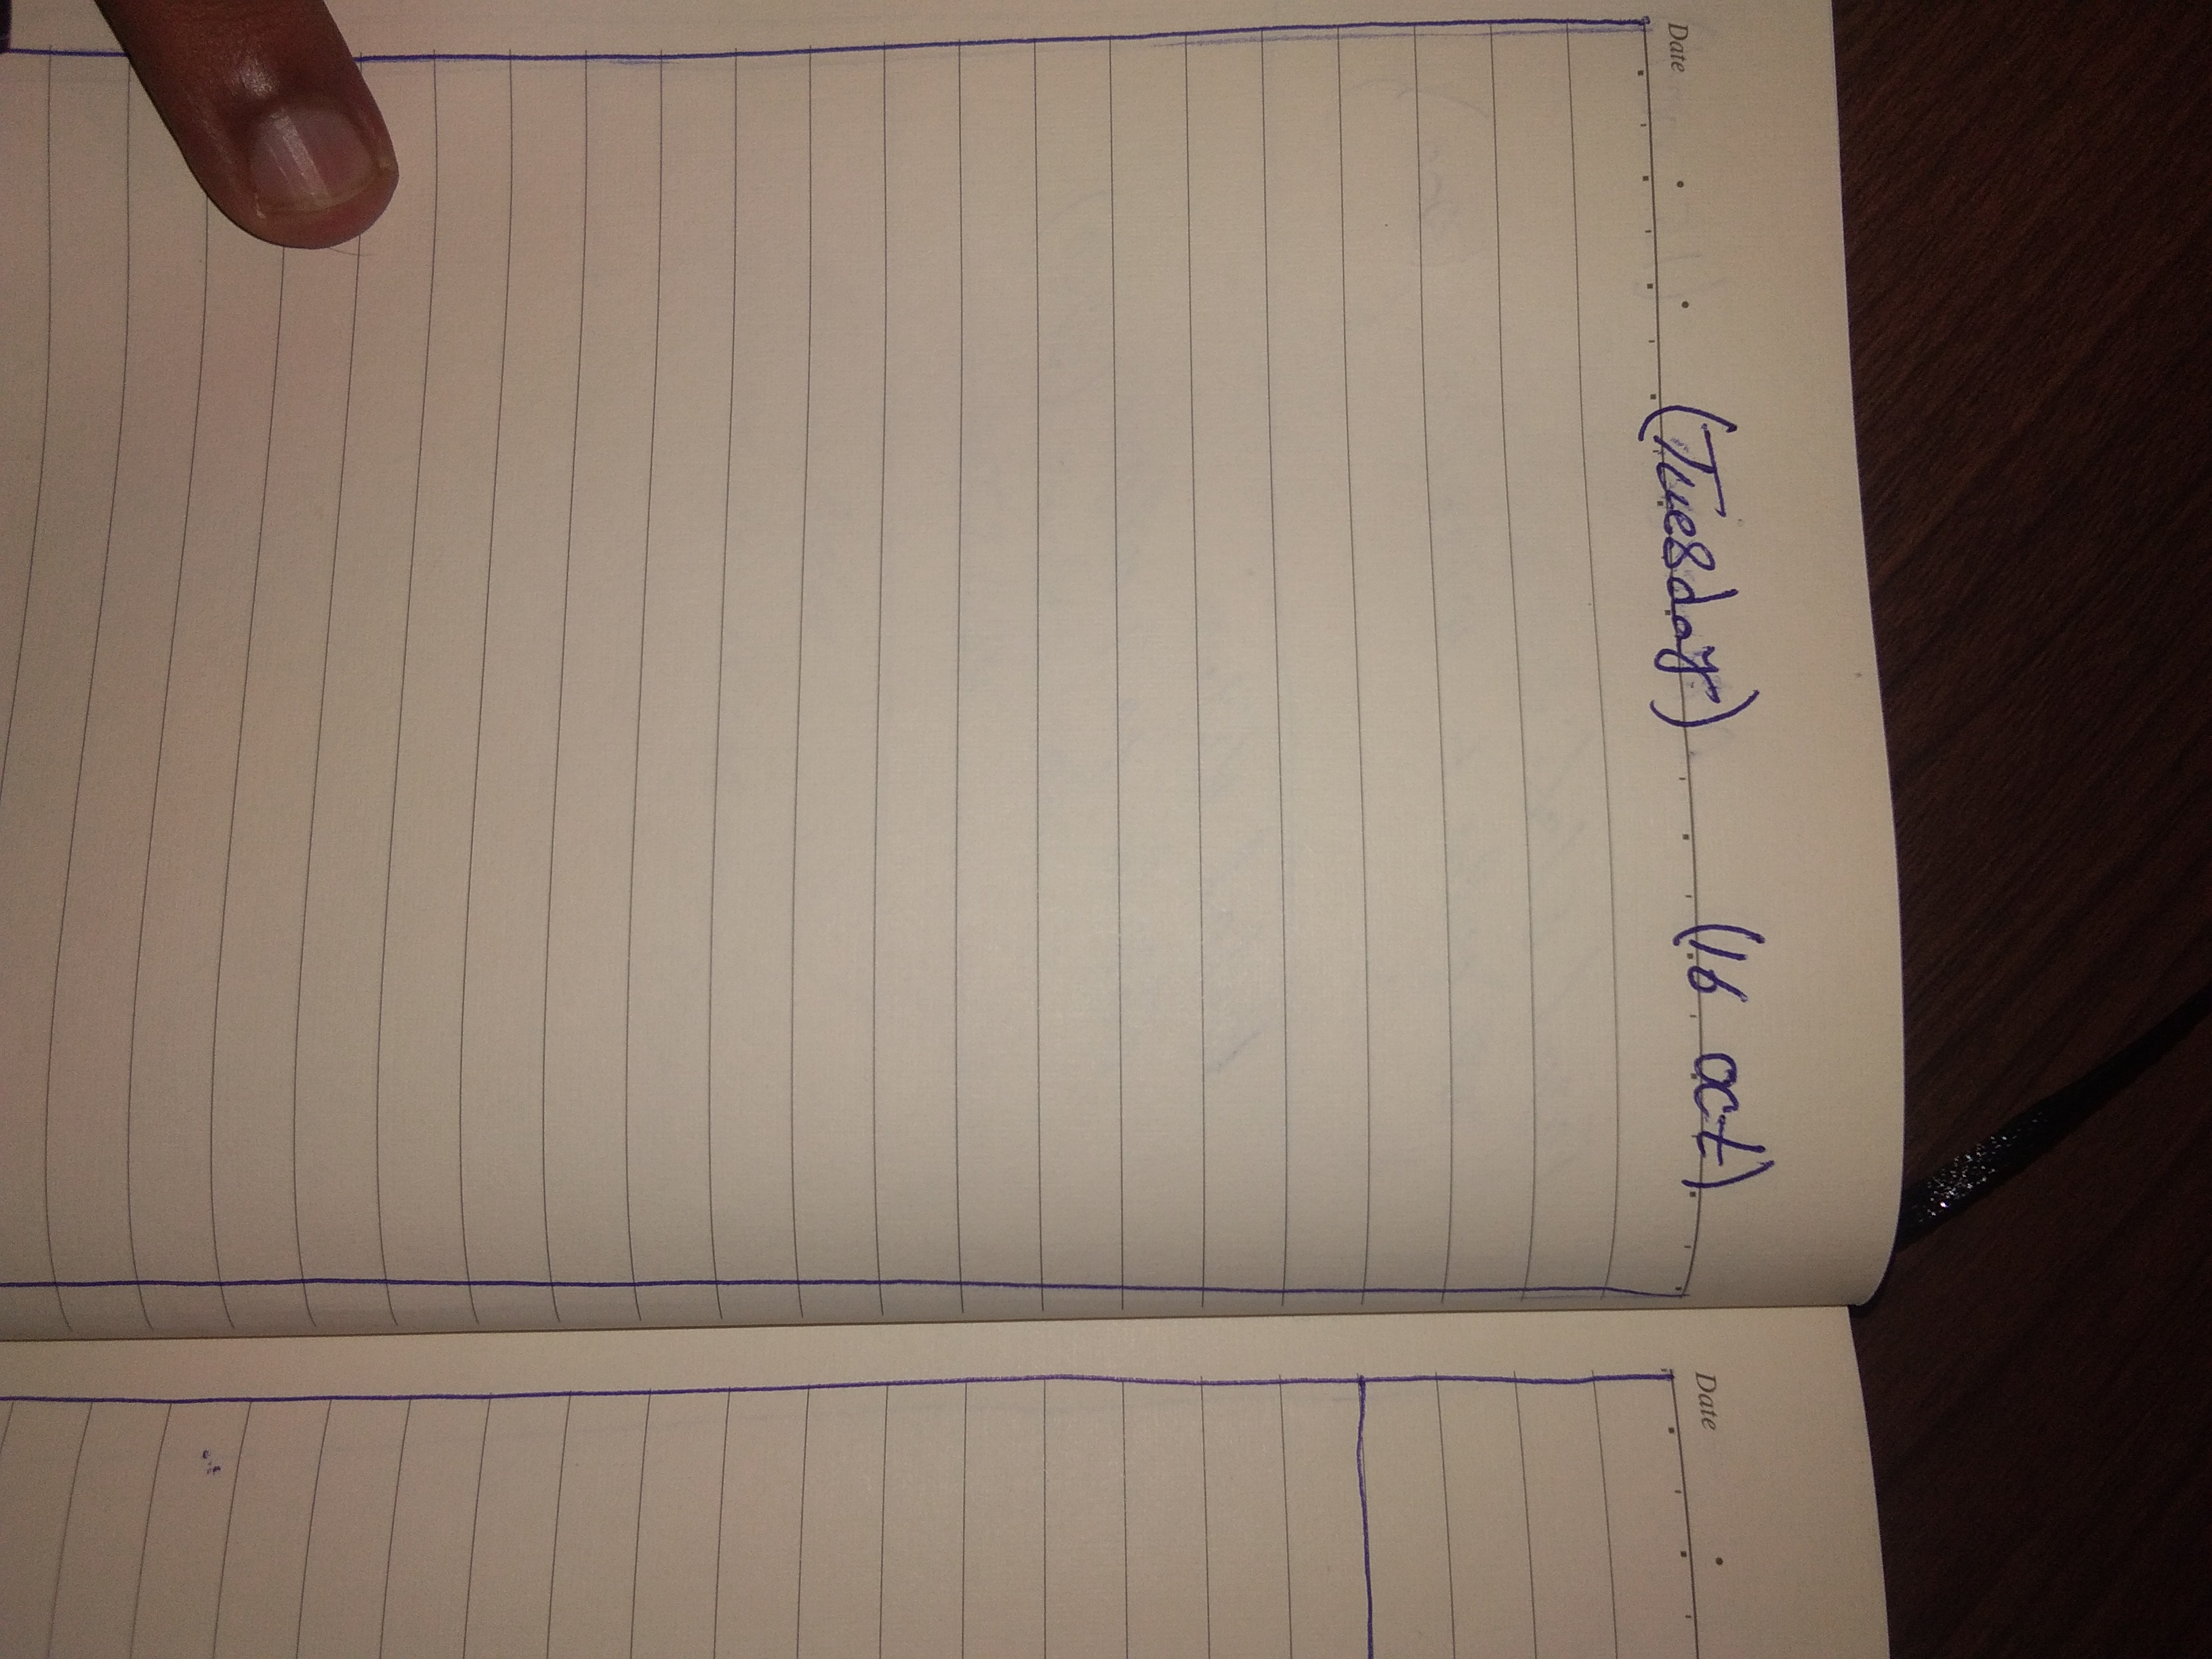 Date
(Tuesday) (16 oct)
Date